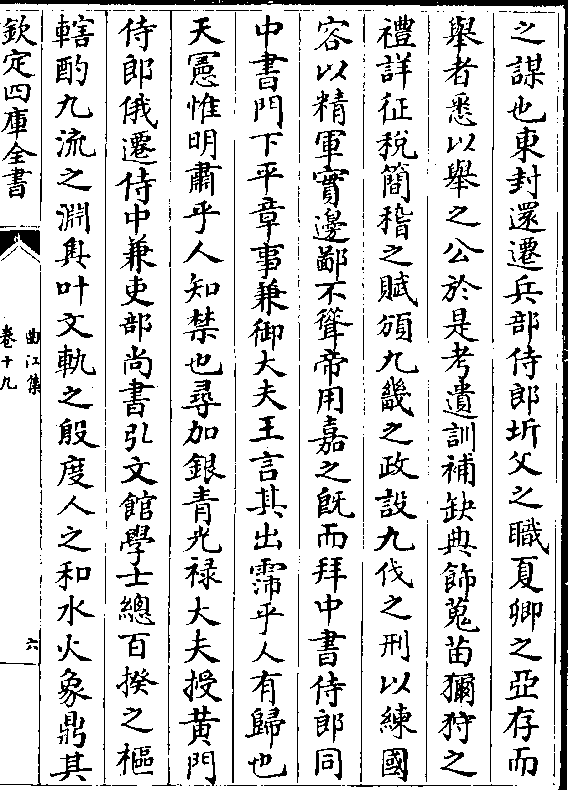 之謀也東封還遷兵部侍郎圻父之職夏卿之亞存而
舉者悉以舉之公於是考遺訓補缺典飾蒐苗獮狩之
禮詳征稅簡稽之賦頒九畿之政設九伐之刑以練國
容以精軍實邊鄙不聳帝用嘉之既而拜中書侍郎同
中書門下平章事兼御大夫王言其出霈乎人有歸也
天憲惟明肅乎人知禁也尋加銀青光禄大夫授黄門
侍郎俄遷侍中兼吏部尚書弘文館學士總百揆之樞
轄酌九流之淵與叶文軌之殷度人之和水火象鼎其
欽定四庫全書
曲江集
卷十九
六